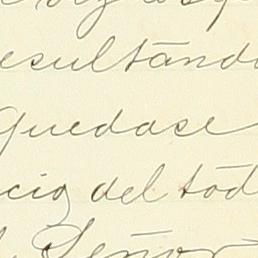 esultando
quedase
cio del tod
Señor